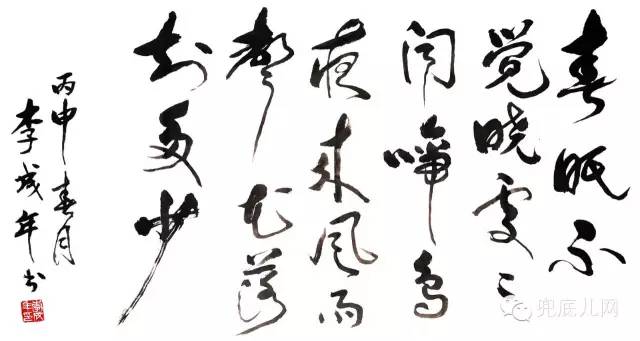 春眠不
觉晓处々
闻啼鸟
夜来风雨
声花落
知多少
丙申春月
李成年书
兜底儿网